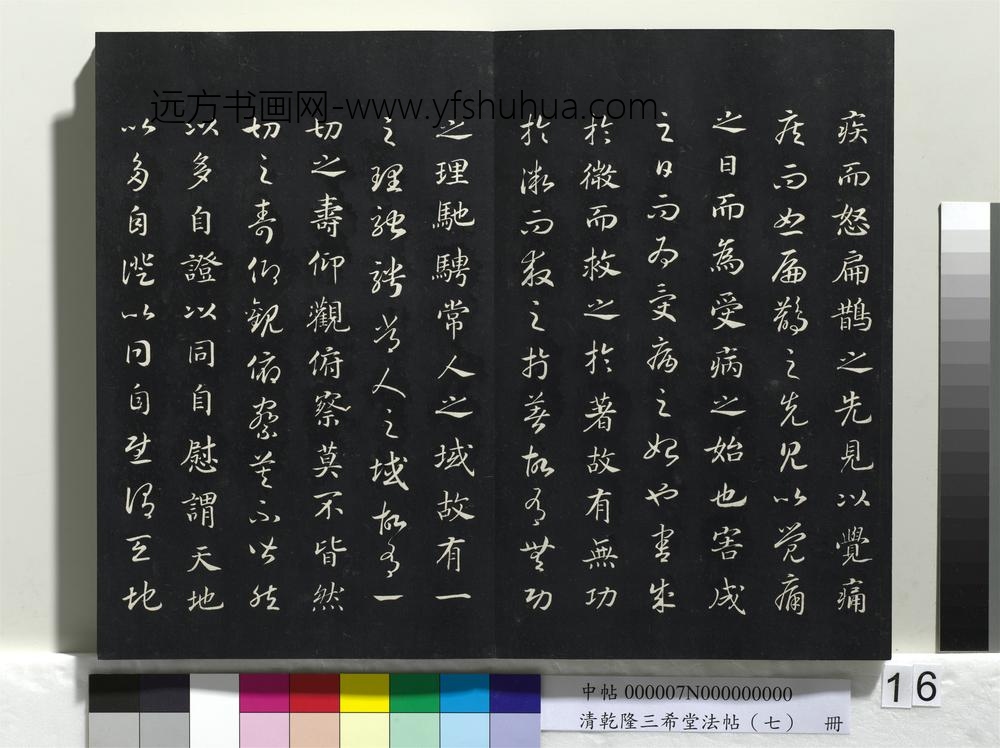 远方书画网-www.yfshuhua.com
疾而怒扁鵲之先見以覺痛
疾而怒扁鵲之先見以覺痛
之日而為受病之始也害成
之日而為受病之始也害成
於微而救之於著故有無功
於微而救之於著故有無功
之理馳騁常人之域故有一
之理馳騁常人之域故有一
切之壽仰觀俯察莫不皆然
切之壽仰觀俯察莫不皆然
以多自證以同自慰謂天地
以多自證以同自慰謂天地
中帖 000007N000000000
清乾隆三希堂法帖(七) 冊
16